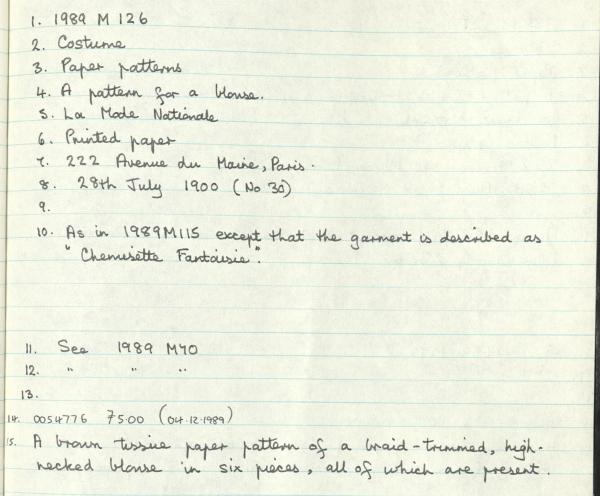 1. 1989 M 126
2. Costume
3. Paper patterns
4. A pattern for a blouse.
5. La Mode Nationale
6. Printed paper
7. 222 Avenue du Maine, Paris.
8. 28th July 1900 (No 30)
9.
10. As in 1989M115 except that the garment is described as
"Chemisette Fantaisie".
11. See 1989 M70
12. " " "
13.
14. 0054776 75.00 (04.12.1989)
15. A brown tissue paper pattern of a braid-trimmed, high-
necked blouse in six pieces, all of which are present.